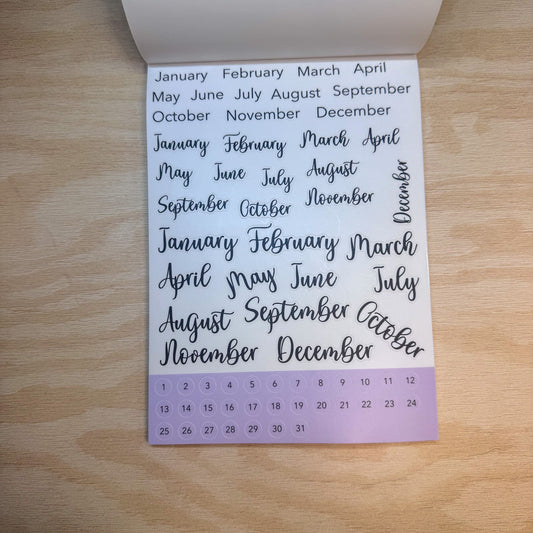 January February March April
May June July August September
October November December
January February March April
May June July August
September October November December
January February March
April May June July
August September October
November December
1 2 3 4 5 6 7 8 9 10 11 12
13 14 15 16 17 18 19 20 21 22 23 24
25 26 27 28 29 30 31